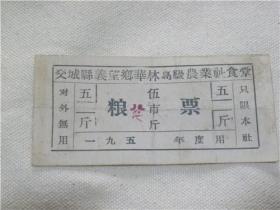 交城縣義望鄉華休高級農業社食堂
只限本社
五市斤
粮票
伍市斤
五市斤
對外無用
一九五 年度用